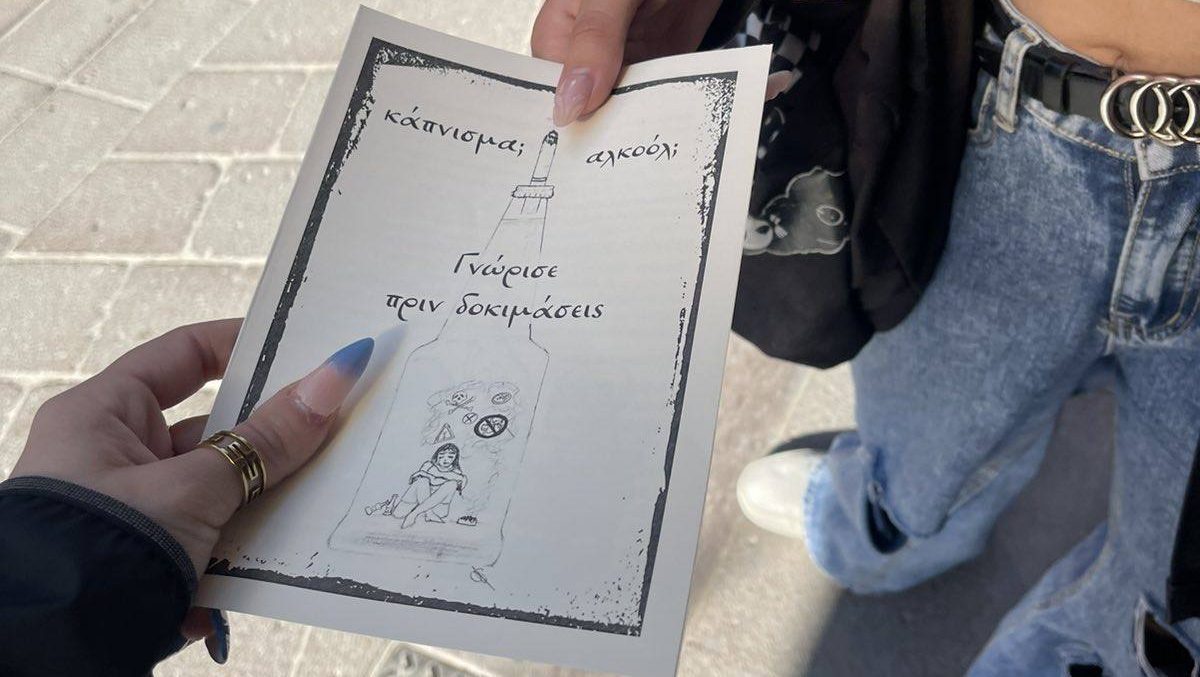 κάπνισμα; αλκοόλ;
Γνώρισε
πριν δοκιμάσεις